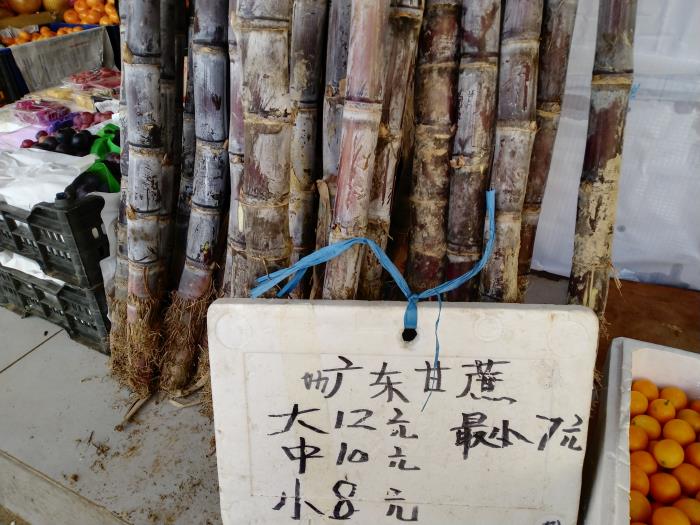 广东甘蔗
大12元
中10元 最小7元
小8元